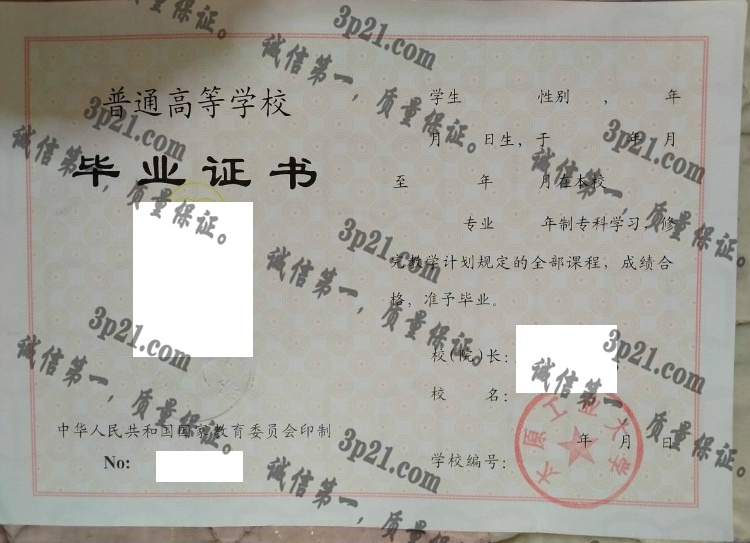 3p21.com
质量保证。
诚信第一，质量保证。
普通高等学校
毕业证书
3p21.com
诚信第一，质量保证。
中华人民共和国国家教育委员会印制
No:
3p21.com
诚信第一，质量保证。
学生 性别 ， 年
月 日生，于 年 月
至 年 月在本校
专业 年制专科学习，修
完教学计划规定的全部课程，成绩合
格，准予毕业。
校(院)长：
校 名：
年 月 日
学校编号：
原工业大学
3p21.com
诚信第一，质量保证。
3p21.com
诚信第一，质量保证。
3p21.com
诚信第一，质量保证。
3p21.com
诚信第一，质量保证。